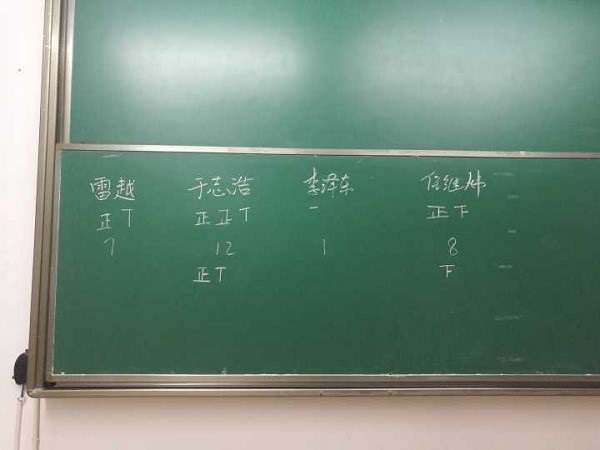 雷越 于志浩 李泽东 任维
正丅 正正丅 一 正下
7 12 1 8
正丅 下